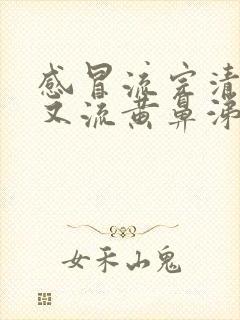 感冒流完清
又流黄鼻涕
女禾山鬼